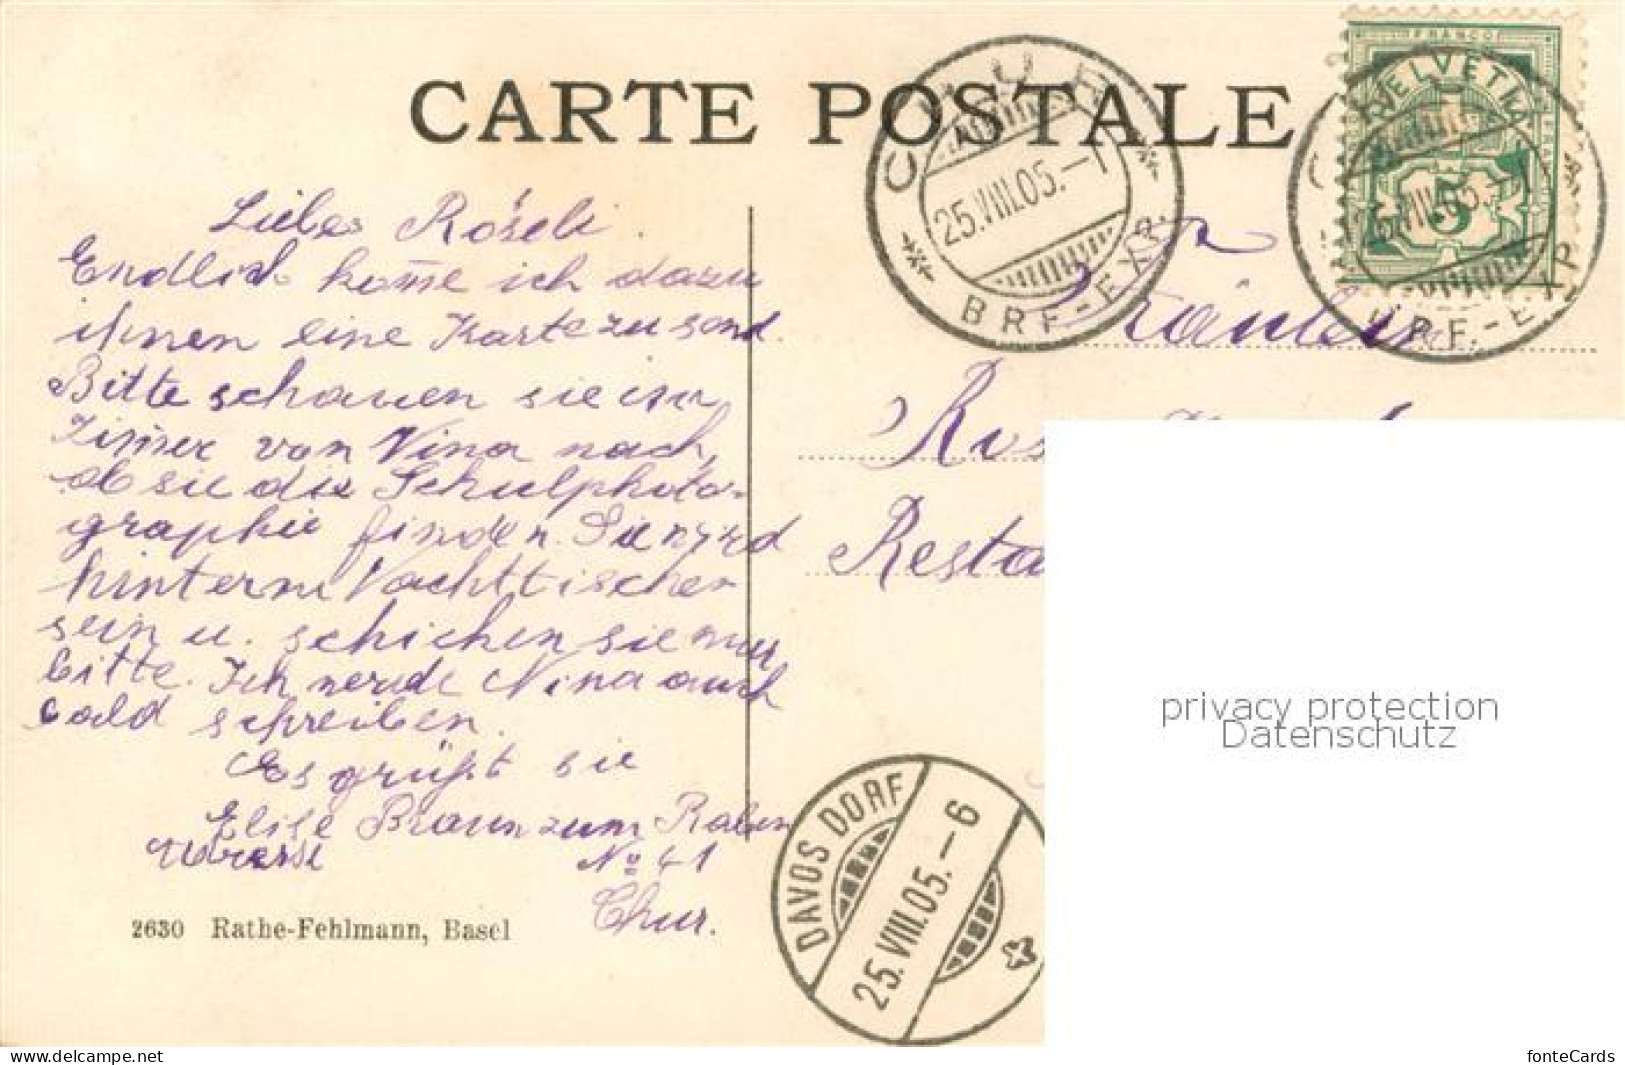 CARTE POSTALE
FRANCO
HELVETIA
5
CHUR
25.VIII.05.-1
BRF-EXP.
25.VIII.05.-1
BRF.-EXP
Liebes Röseli.
Endlich kom̅e ich dazu
ihnen eine Karte zu send.
Bitte schauen sie im
Zim̅er von Nina nach,
ob sie die Schulphoto-
graphie finden. Sie wird
hinterm Nachttischen
sein u. schicken sie mir
bitte. Ich werde Nina auch
bald schreiben.
Es grüßt sie
Elise Braun zum Raben
Adresse No 41
Chur.
Fräulein
Ros
Resta
DAVOS DORF
25.VIII.05.-6
2630 Rathe-Fehlmann, Basel
privacy protection
Datenschutz
https://www.delcampe.net
fonteCards